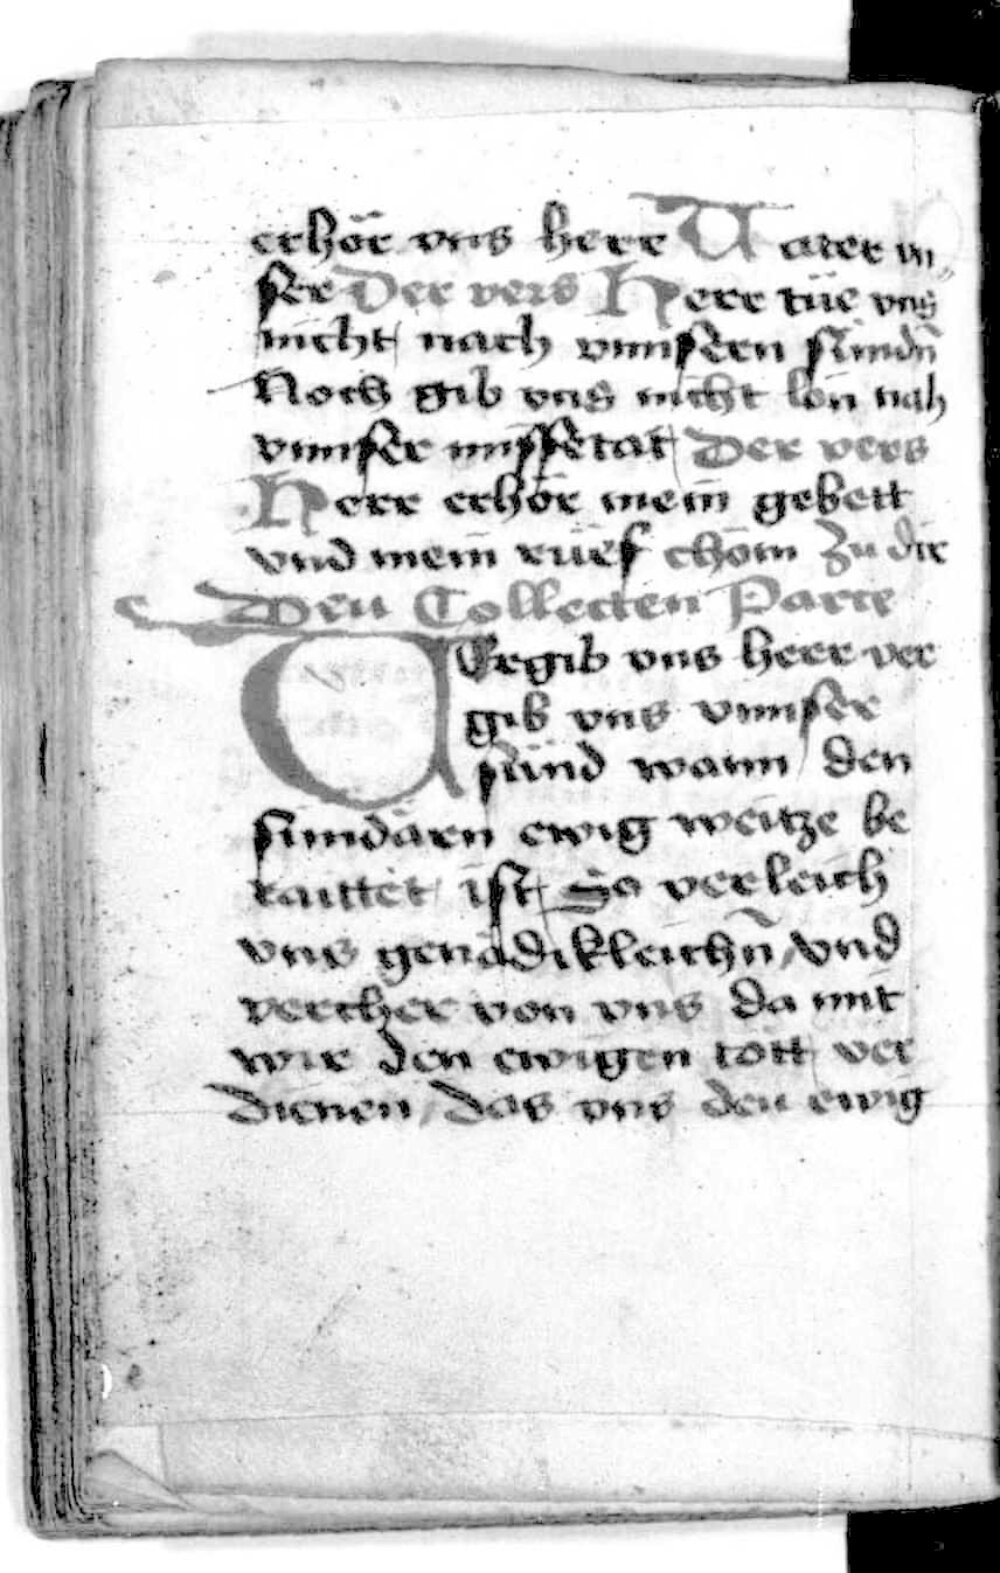 erhör vns herr Uater vn„
ser Der vers Herr tüe vns
nicht nach vnnsern sünndn̄
Noch gib vns nicht lon nah
vnnser missetat Der vers
Herr erhör mein gebett
vnd mein rüef chöm zu dir
Den Collecten Parce
VErgib vns herr ver
gib vns vnnser
sünd wann den
sünndärn ewig weitze be
raittet ist So verleich
vns genädikleichn̄ vnd
vercher von vns da mit
wir den ewigen tött ver
dienen das vns den ewig